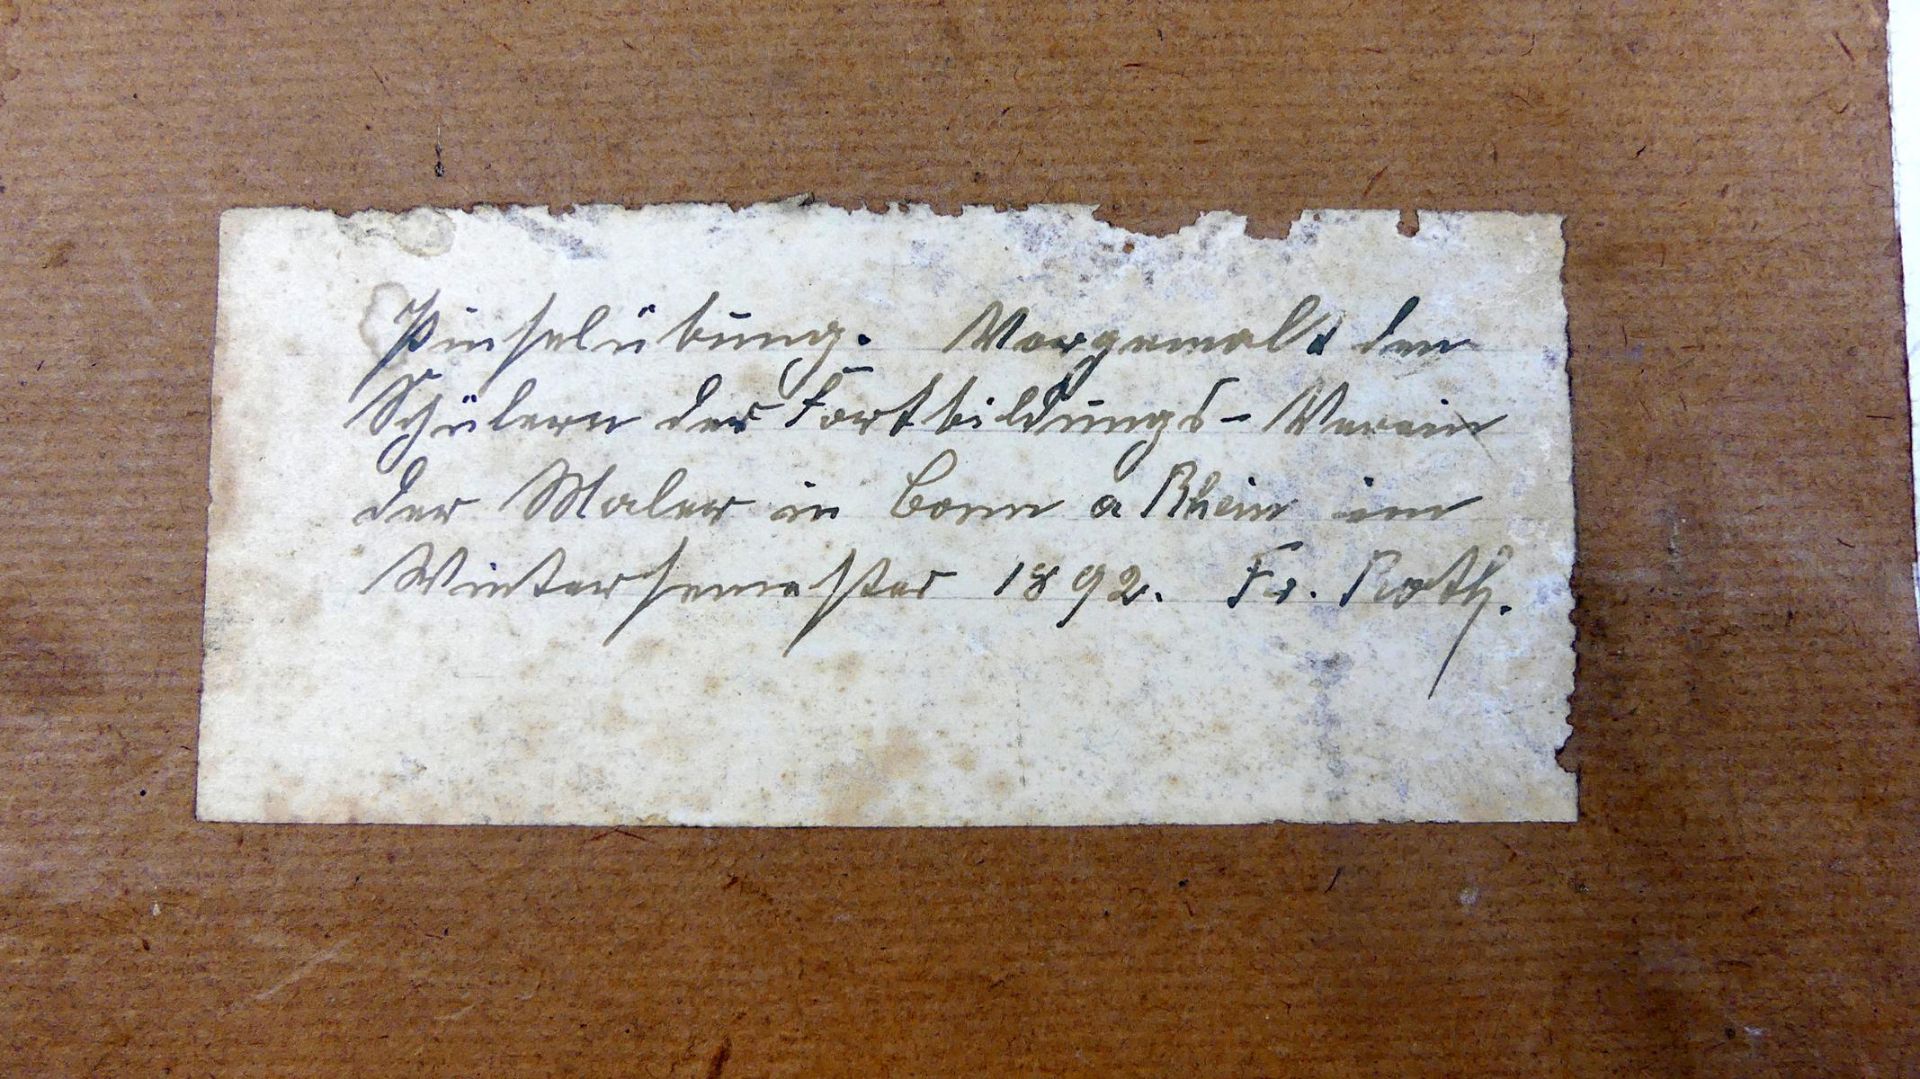 Pinselübung. Vorgemalt den
Schülern der Fortbildungs-Verein
der Maler in Bonn a Rhein im
Wintersemester 1892. Fr. Roth.